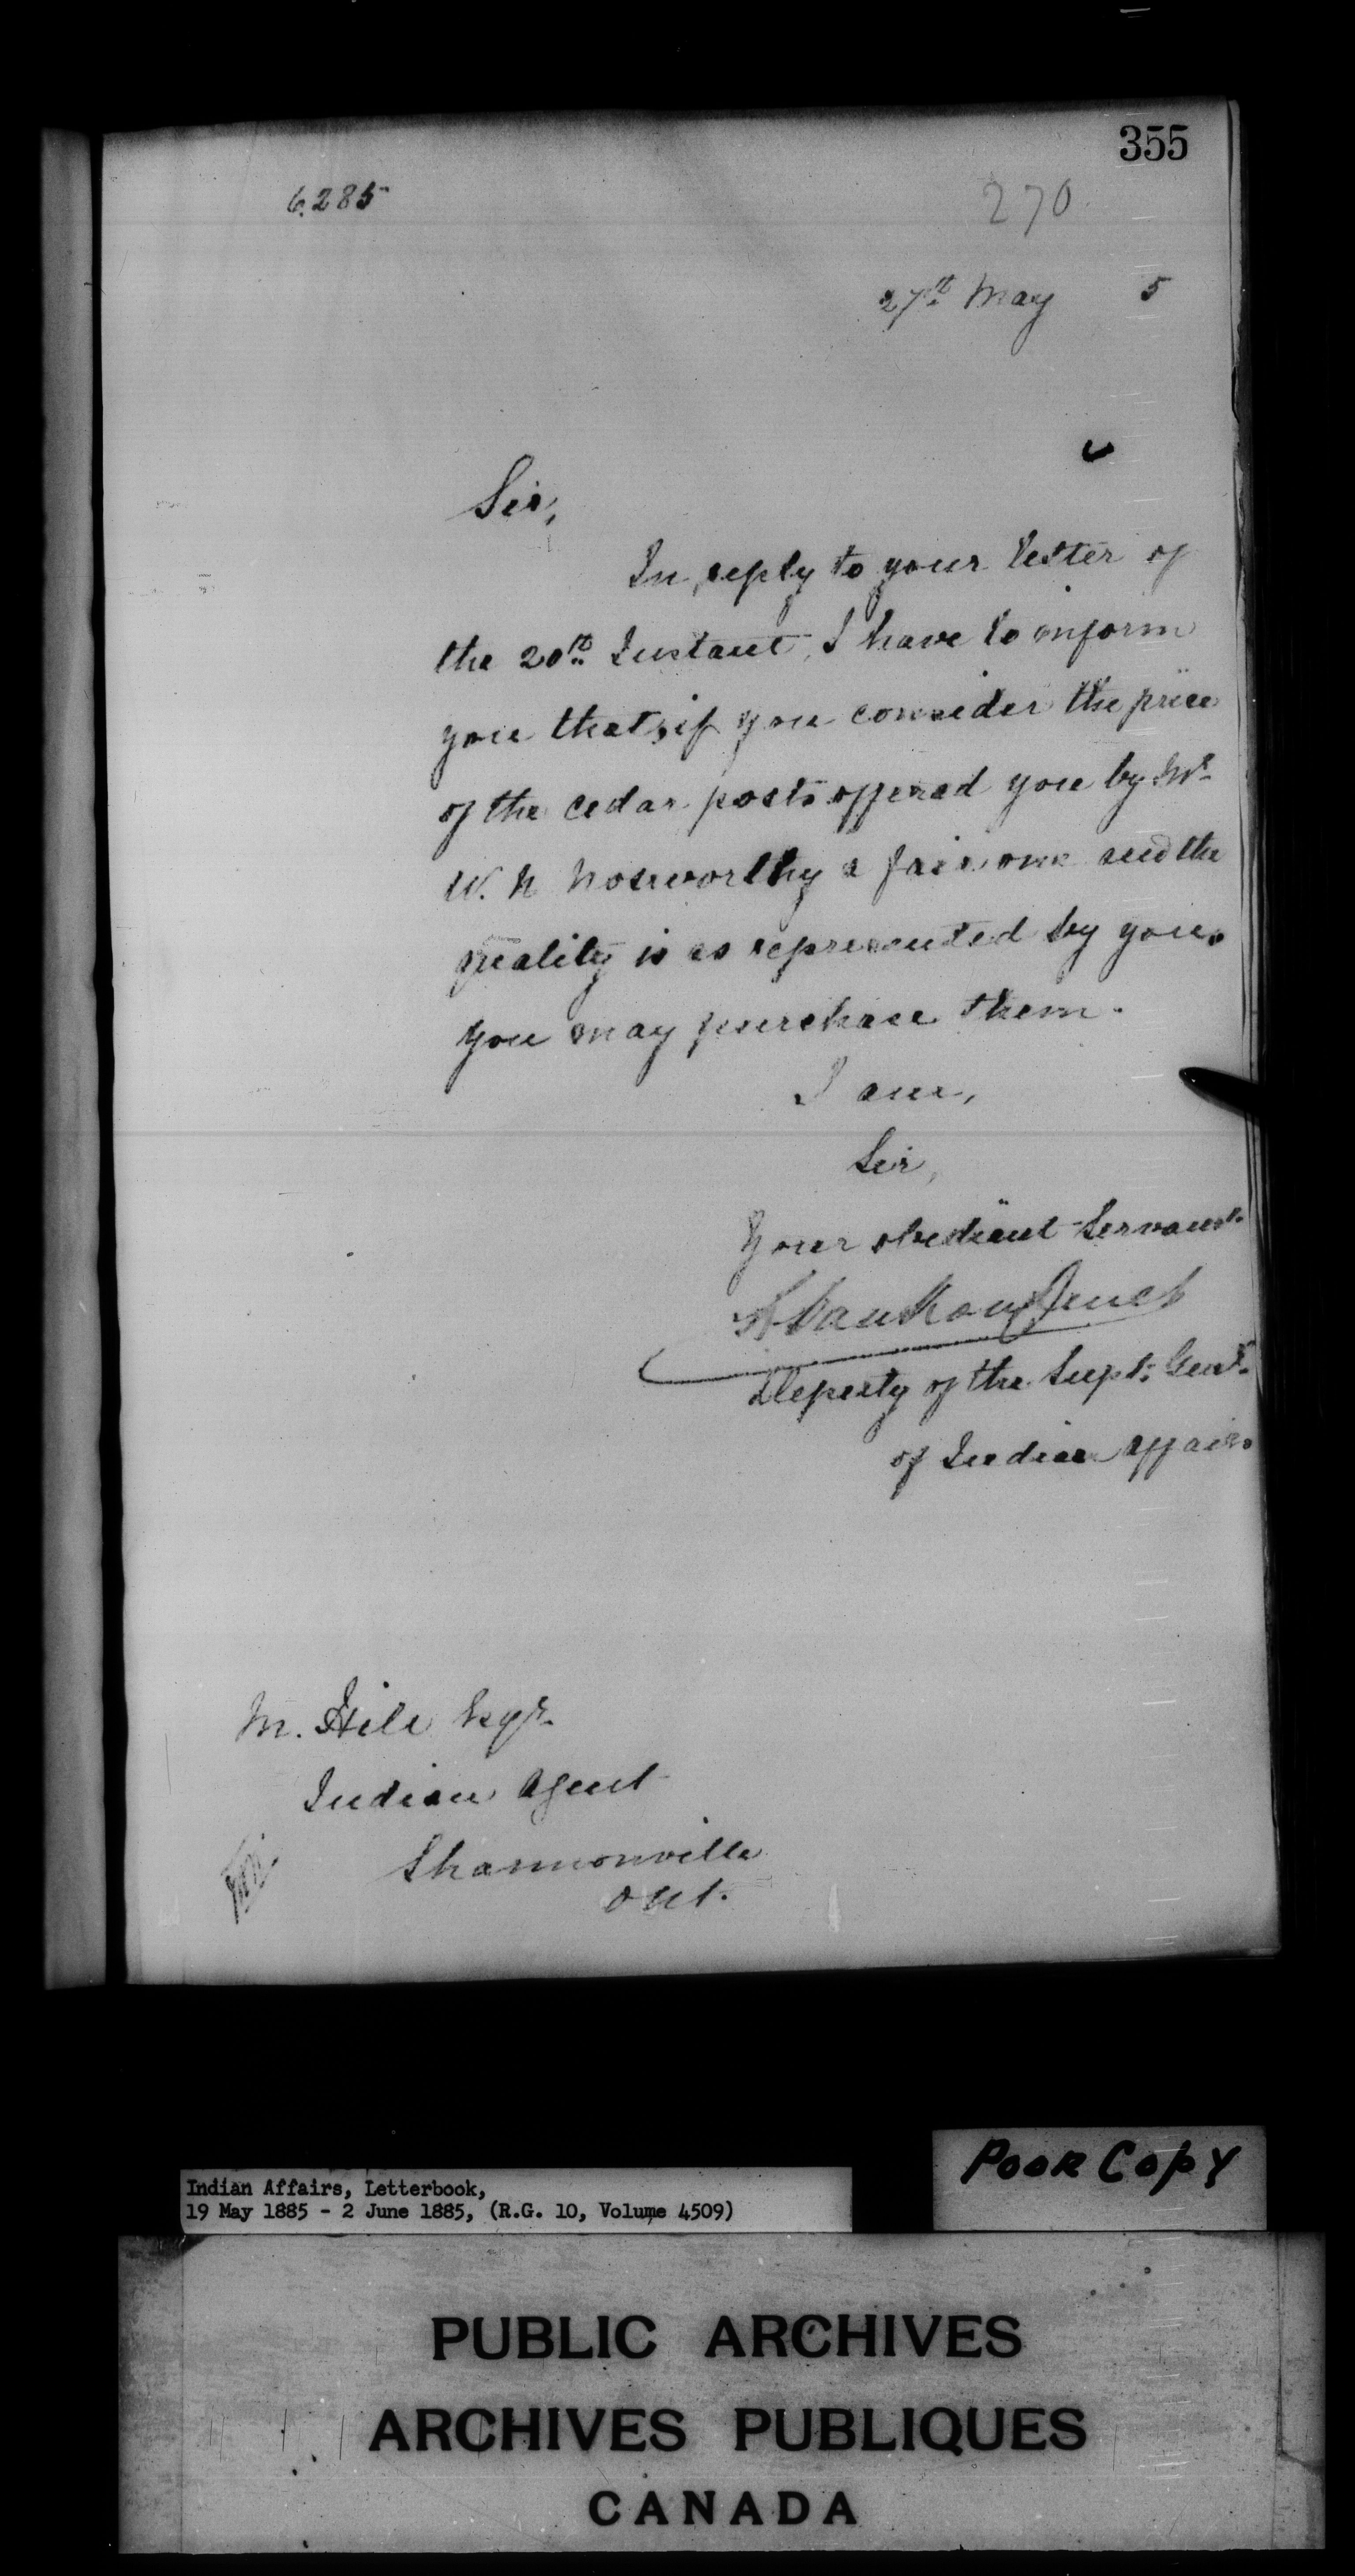 355
6285
270
27th May 5
Sir,
In reply to your letter of
the 20th Instant, I have to inform
you that, if you consider the price
of the cedar posts offered you by Mr
W. N Nosworthy a fair one and the
quality is as represented by you,
you may purchase them.
I am,
Sir,
Your obedient Servant
L VanKoughnet
Deputy of the Supt. Genl.
of Indian Affairs
M. Hill Esqr.
Indian Agent
Shannonville
Ont.
Indian Affairs, Letterbook,
19 May 1885 - 2 June 1885, (R.G. 10, Volume 4509)
POOR COPY
PUBLIC ARCHIVES
ARCHIVES PUBLIQUES
CANADA